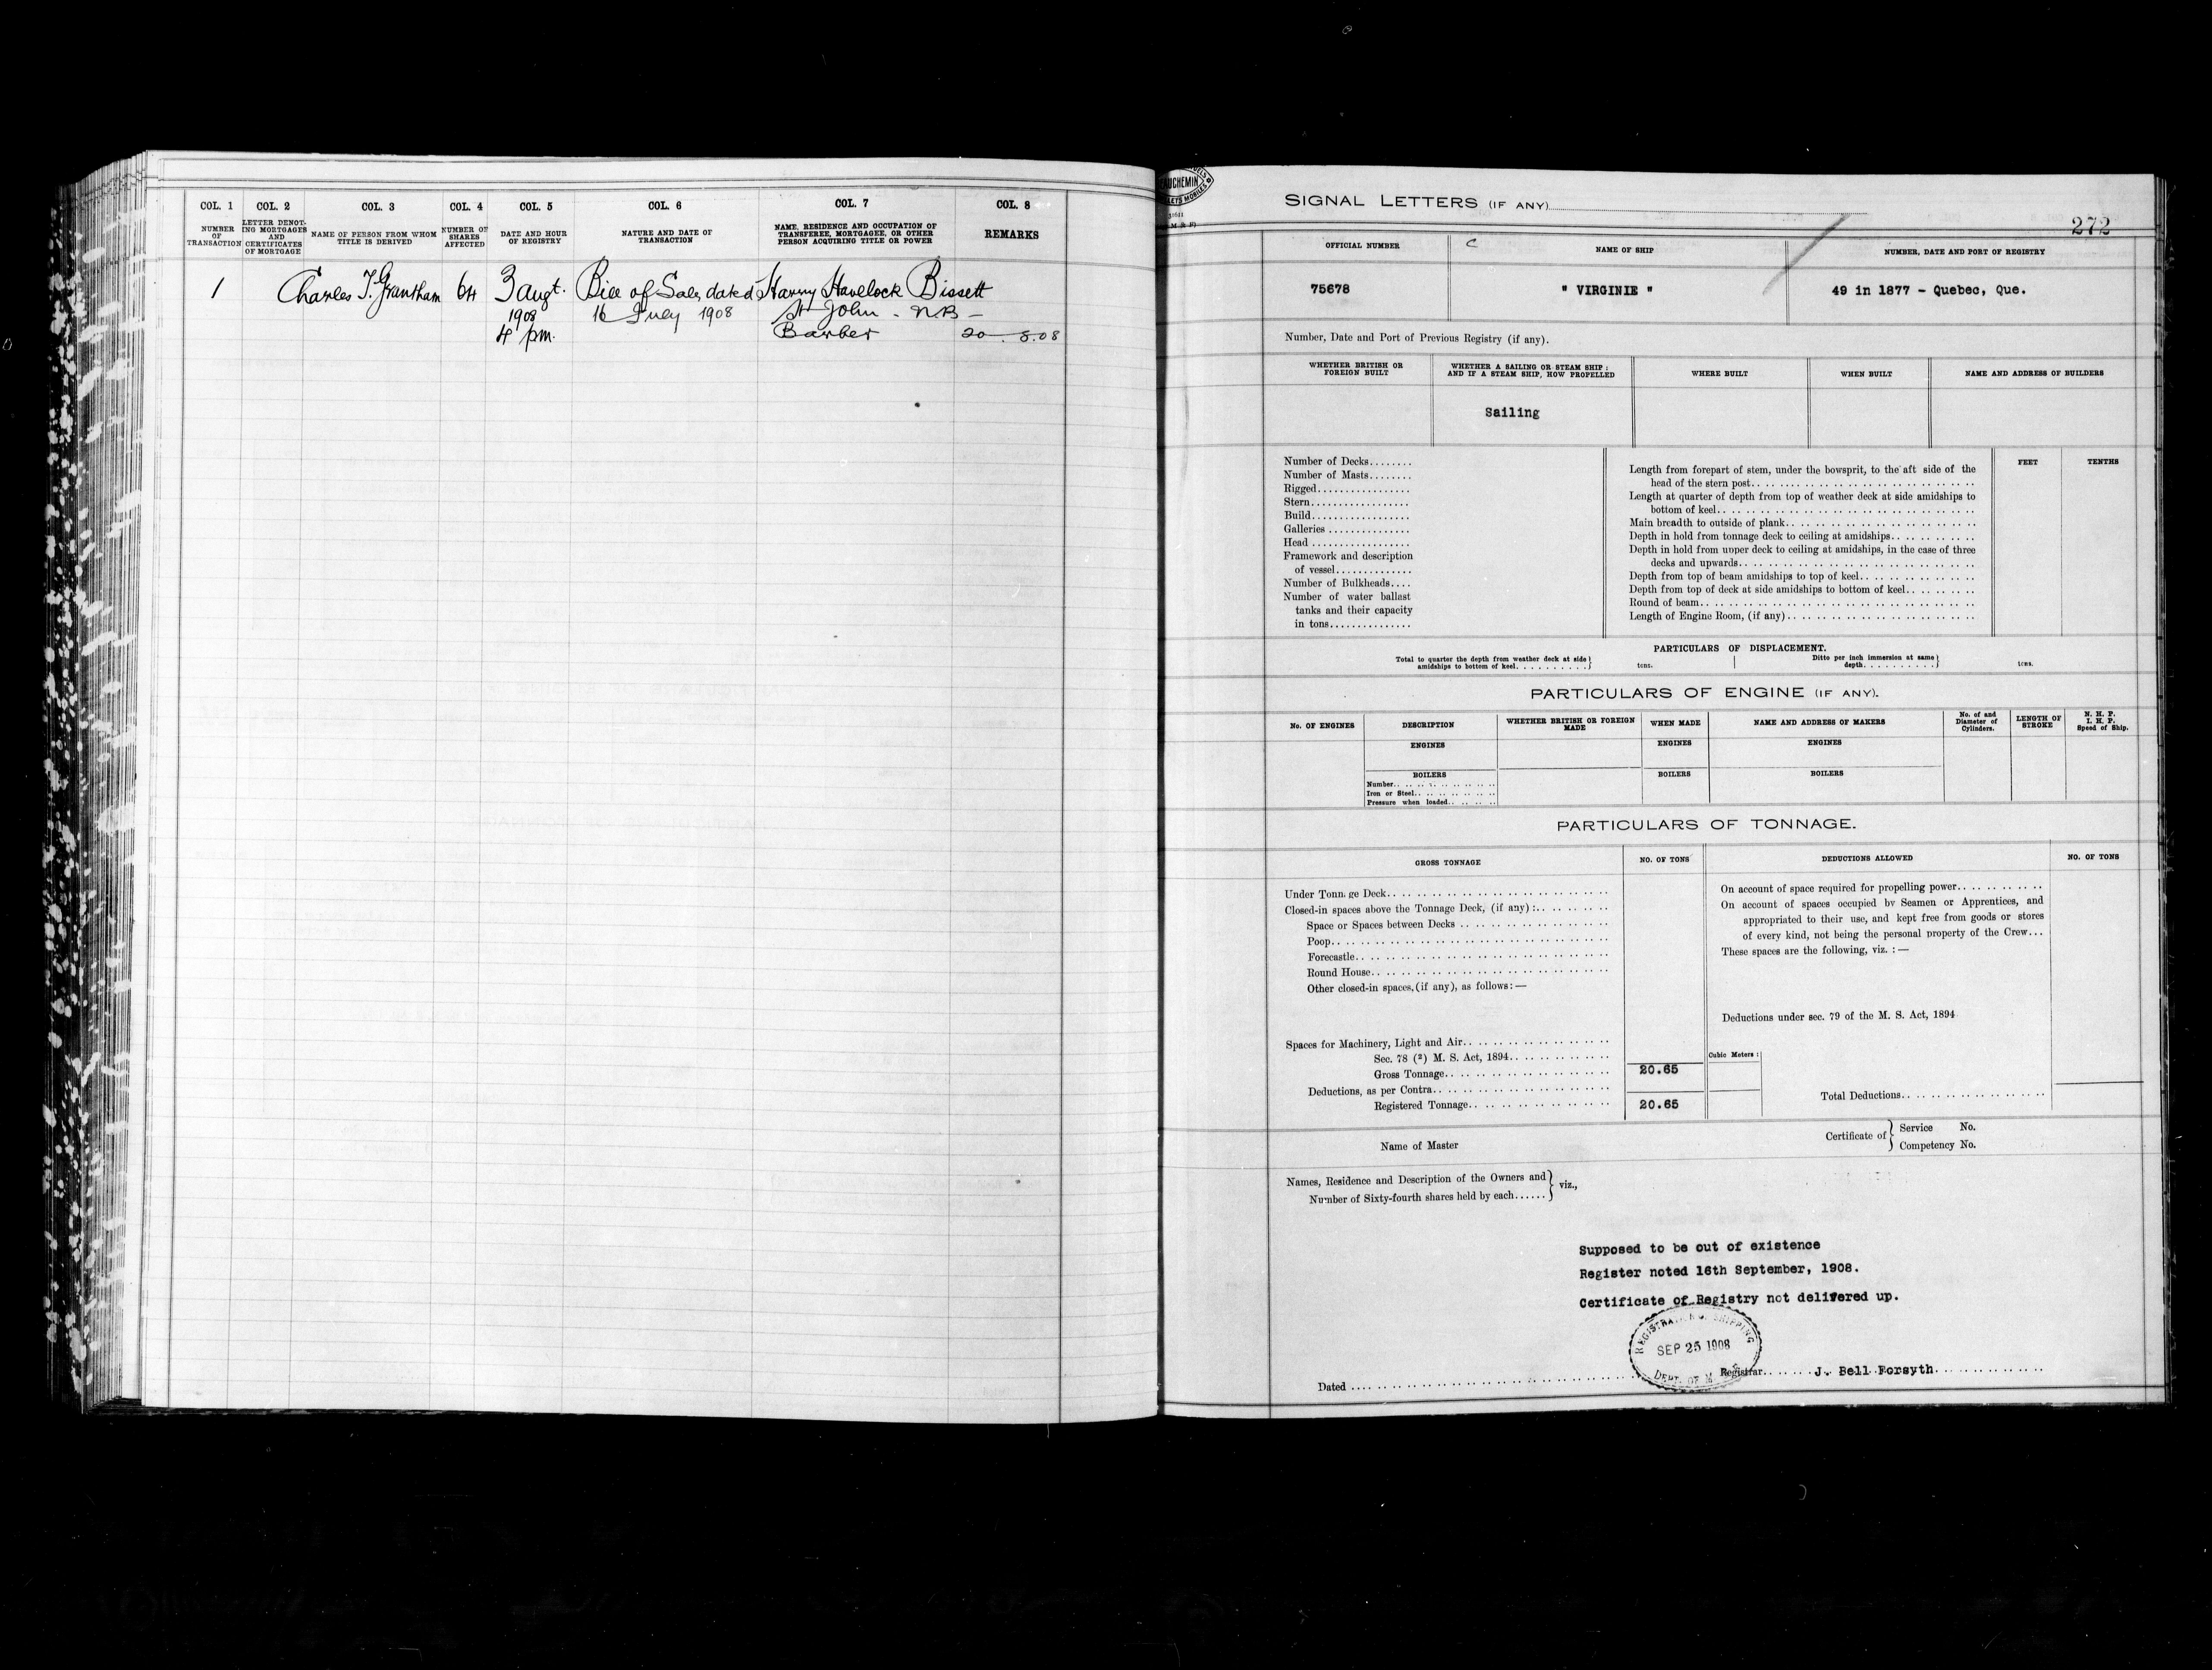 COL. 1 COL. 2 COL. 3 COL. 4 COL. 5 COL. 6 COL. 7 COL. 8
NUMBER OF TRANSACTION
LETTER DENOTING MORTGAGES AND CERTIFICATES OF MORTGAGE
NAME OF PERSON FROM WHOM TITLE IS DERIVED
NUMBER OF SHARES AFFECTED
DATE AND HOUR OF REGISTRY
NATURE AND DATE OF TRANSACTION
NAME, RESIDENCE AND OCCUPATION OF TRANSFEREE, MORTGAGEE, OR OTHER PERSON ACQUIRING TITLE OR POWER
REMARKS
1 Charles T. Grantham 64 3 augt. Bill of Sale, dated Harry Havelock Bissett
1908 16 July 1908 St John - N.B -
4 pm. Barber 20 . 8.08
SIGNAL LETTERS (IF ANY)
272
OFFICIAL NUMBER
C
NAME OF SHIP
NUMBER, DATE AND PORT OF REGISTRY
75678 " VIRGINIE " 49 in 1877 - Quebec, Que.
Number, Date and Port of Previous Registry (if any).
WHETHER BRITISH OR FOREIGN BUILT
WHETHER A SAILING OR STEAM SHIP : AND IF A STEAM SHIP, HOW PROPELLED
WHERE BUILT
WHEN BUILT
NAME AND ADDRESS OF BUILDERS
Sailing
Number of Decks........
Number of Masts........
Rigged.................
Stern..................
Build..................
Galleries ...............
Head ..................
Framework and description
of vessel..............
Number of Bulkheads....
Number of water ballast
tanks and their capacity
in tons...............
FEET TENTHS
Length from forepart of stem, under the bowsprit, to the aft side of the
head of the stern post..
Length at quarter of depth from top of weather deck at side amidships to
bottom of keel..
Main breadth to outside of plank..
Depth in hold from tonnage deck to ceiling at amidships..
Depth in hold from upper deck to ceiling at amidships, in the case of three
decks and upwards..
Depth from top of beam amidships to top of keel..
Depth from top of deck at side amidships to bottom of keel..
Round of beam..
Length of Engine Room, (if any)..
PARTICULARS OF DISPLACEMENT.
Total to quarter the depth from weather deck at side
amidships to bottom of keel.......... tons.
Ditto per inch immersion at same
depth.......... tons.
PARTICULARS OF ENGINE (IF ANY).
No. OF ENGINES
DESCRIPTION
WHETHER BRITISH OR FOREIGN MADE
WHEN MADE
NAME AND ADDRESS OF MAKERS
No. of and Diameter of Cylinders.
LENGTH OF STROKE
N. H. P. I. H. P. Speed of Ship.
ENGINES ENGINES ENGINES
BOILERS BOILERS BOILERS
Number..
Iron or Steel..
Pressure when loaded..
PARTICULARS OF TONNAGE.
GROSS TONNAGE NO. OF TONS DEDUCTIONS ALLOWED NO. OF TONS
Under Tonnage Deck..
Closed-in spaces above the Tonnage Deck, (if any) :..
Space or Spaces between Decks ..
Poop..
Forecastle..
Round House..
Other closed-in spaces, (if any), as follows : —
Spaces for Machinery, Light and Air..
Sec. 78 (2) M. S. Act, 1894..
Gross Tonnage.. 20.65
Deductions, as per Contra..
Registered Tonnage.. 20.65
Cubic Meters :
On account of space required for propelling power..
On account of spaces occupied by Seamen or Apprentices, and
appropriated to their use, and kept free from goods or stores
of every kind, not being the personal property of the Crew...
These spaces are the following, viz. : —
Deductions under sec. 79 of the M. S. Act, 1894
Total Deductions..
Name of Master
Certificate of
Service No.
Competency No.
Names, Residence and Description of the Owners and
Number of Sixty-fourth shares held by each......
viz.,
Supposed to be out of existence
Register noted 16th September, 1908.
Certificate of Registry not delivered up.
REGISTRATION OF SHIPPING
SEP 25 1908
DEPT. OF M.
Dated .... Registrar.......J. Bell Forsyth